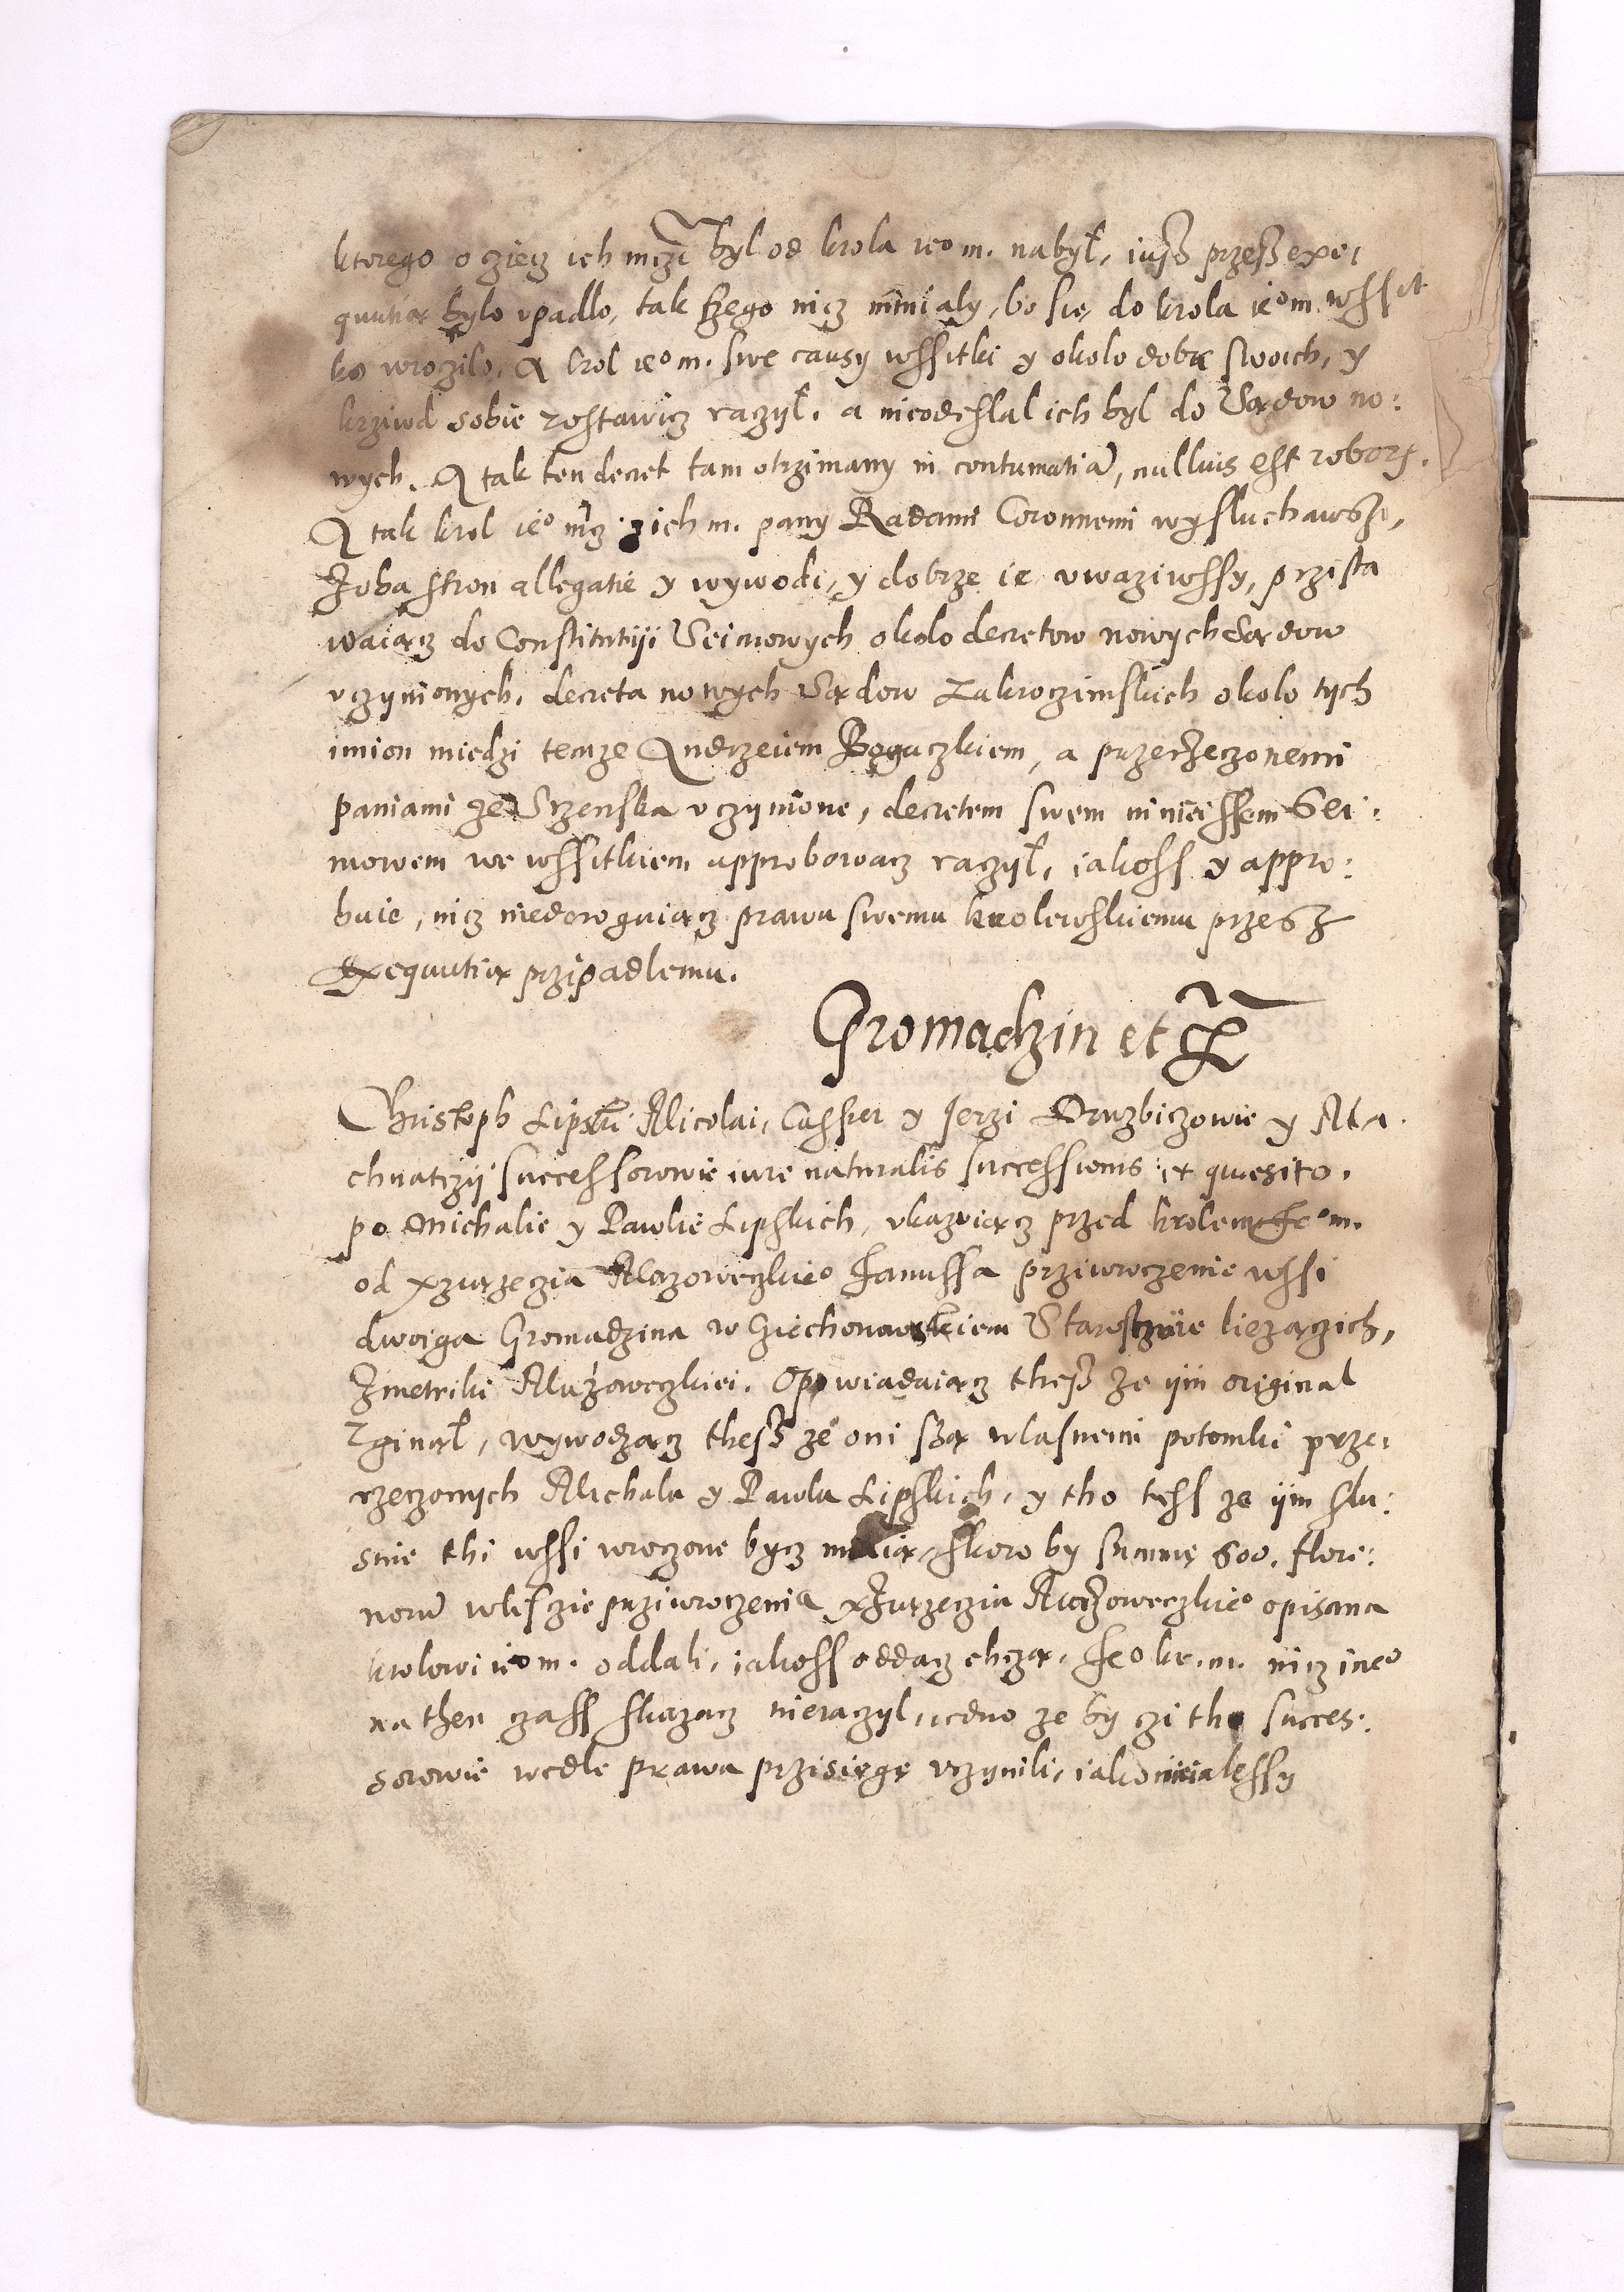 ktorego ocziecz ich mczi był od krola ieo m. nabył, iusz przesz exe,
quutią bylo vpadlo, tak szego nicz niemialy, bo się do krola ieo m. wssit
ko wrocziło. A krol ieo m. swe causy wssitki y okolo dobr swoich, y
krziwd sobie zostawicz raczył. a nieodeslal ich był do Sądow no:
wych. A tak ten decret tam otrzimany in contumatiã, nullius est roboris.
A tak krol ieo mcz z ich m. pany Radami Coronnemi wysluchawszi,
Zoba stron allegatie y wywodi, y dobrze ie vwaziwssy, przista
waiącz do Constitutiji Seimowych okolo decretow nowych Sądow
vczynionych. decreta nowych Sądow Zakroczimskich okolo tych
imion miedzi temze Andrzeiem Boguczkiem, a przerzeczonemi
paniami ze Srzenska vczynione, decretem swem ninieissem Sei:
mowem we wssitkiem approbowacz raczył, iakoss y appro:
buie, nicz niederoguiącz prawu swemu krolewskiemu przesz
Exequutią przipadlemu.
Gromadzin et Cꝫ
Christoph Lipski Nicolai, Casper y Jerzi Druzbiczowie y Ma
chnatczÿ successorowie iure naturalis successionis et quesito.
po Michalie y Pawlie Lipskich, vkazuiącz przed krolem Jeo m.
od xzurzeczia Mazoweczkieo Janussa przywroczenie wssi
dwoiga Gromadzina w Cziechonowskiem Starostwie liezączich,
Zmetriki Mazoweczkiei. Opowiadaiącz thesz ze ÿm original
Zginął, wywodzącz thesz ze oni szą wlasnemi potomki prze,
rzeczonych Michala y Pawla Lipskich, y tho tess ze ÿm slu:
snie thi wssi wroczone bycz maią, skoro by summę 600. flore:
norũ wlisczie przywroczenia xzurzeczia Mazoweczkieo opisana
krolowi ieo m. oddali, iakoss oddacz chczą. Jeo kr. m. nicz ineo
na then czass skazacz nieraczyl, iedno ze by czi tho succes:
sorowie wedle prawa przisięgę vczynili, iako nieialessy